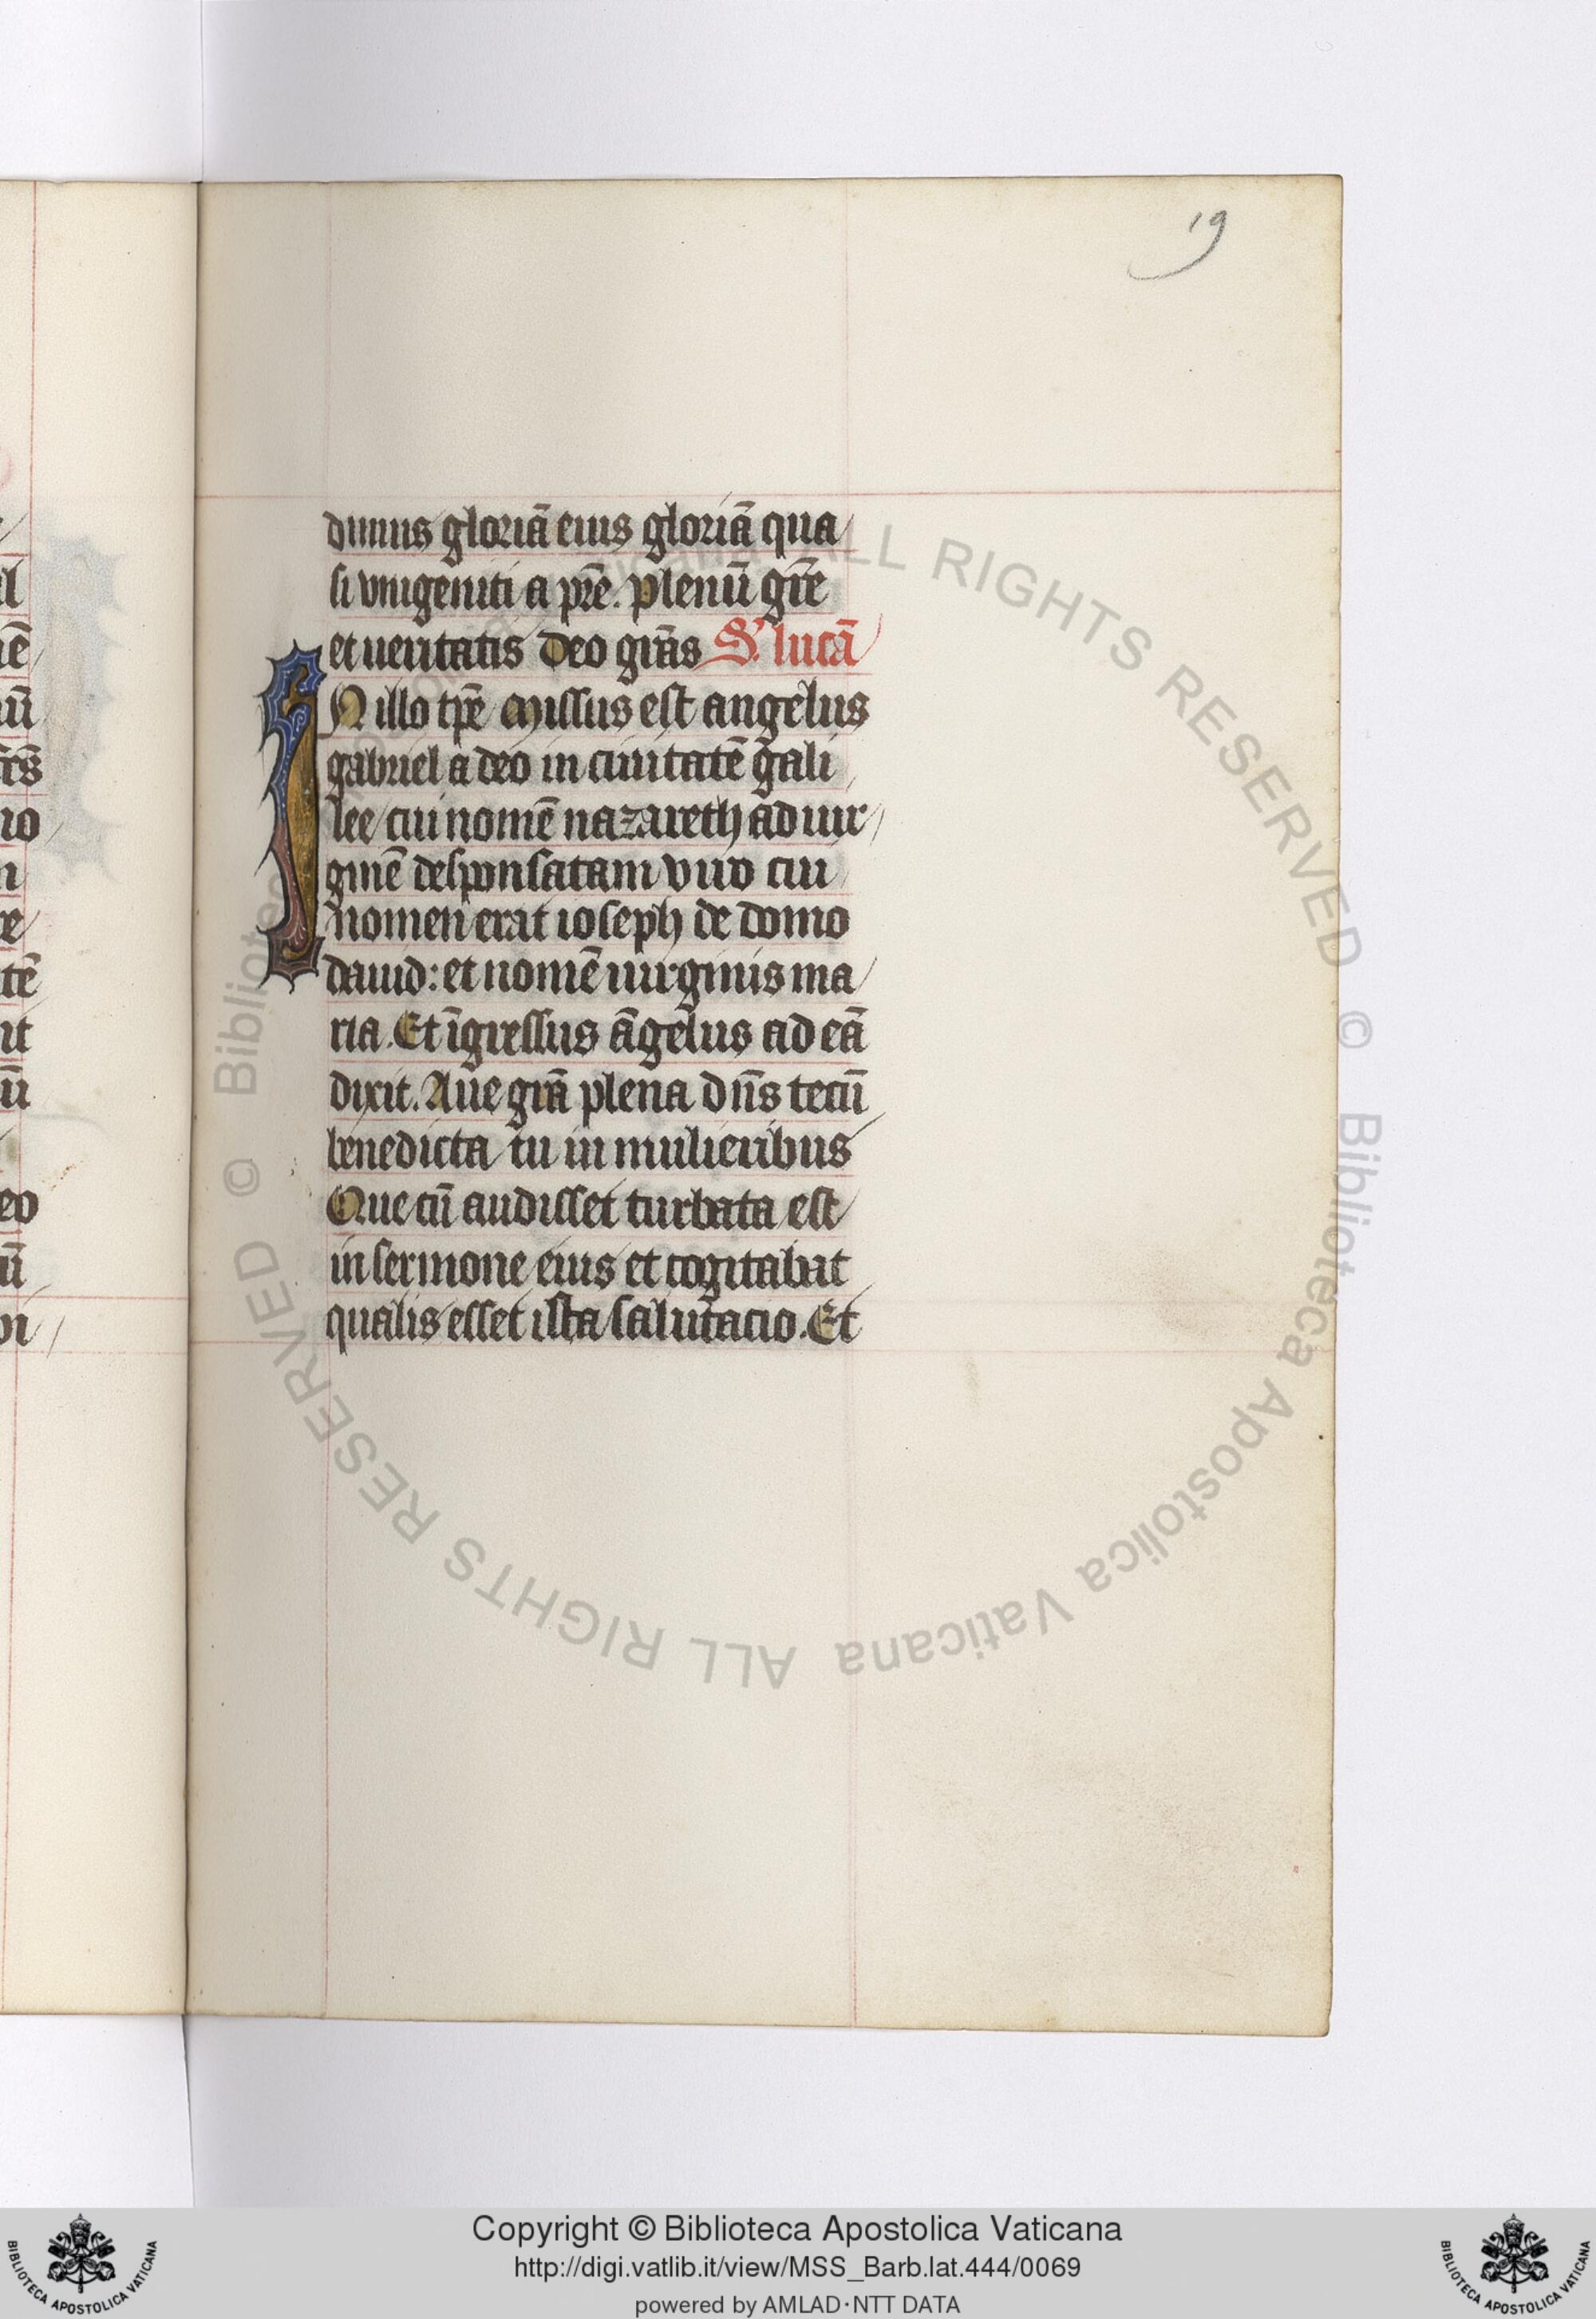 19
dimus gloriā eius gloriā qua
si vnigeniti a pr̄e. plenū gr̄e
et ueritatis Deo grās S. lucā
IN illo tp̄e Missus est angelus
gabriel a deo in ciuitatē gali
lee cui nomē nazareth ad uir
ginē desponsatam viro cui
nomen erat ioseph de domo
dauid: et nomē uirginis ma
ria. Et īgressus āgelus ad eā
dixit. Aue grā plena dn̄s tecū
benedicta tu in mulieribus
Que cū audisset turbata est
in sermone eius et cogitabat
qualis esset ista salutacio. Et
© Biblioteca Apostolica Vaticana ALL RIGHTS RESERVED © Biblioteca Apostolica Vaticana ALL RIGHTS RESERVED
Copyright © Biblioteca Apostolica Vaticana
http://digi.vatlib.it/view/MSS_Barb.lat.444/0069
powered by AMLAD·NTT DATA
BIBLIOTECA APOSTOLICA VATICANA
BIBLIOTECA APOSTOLICA VATICANA